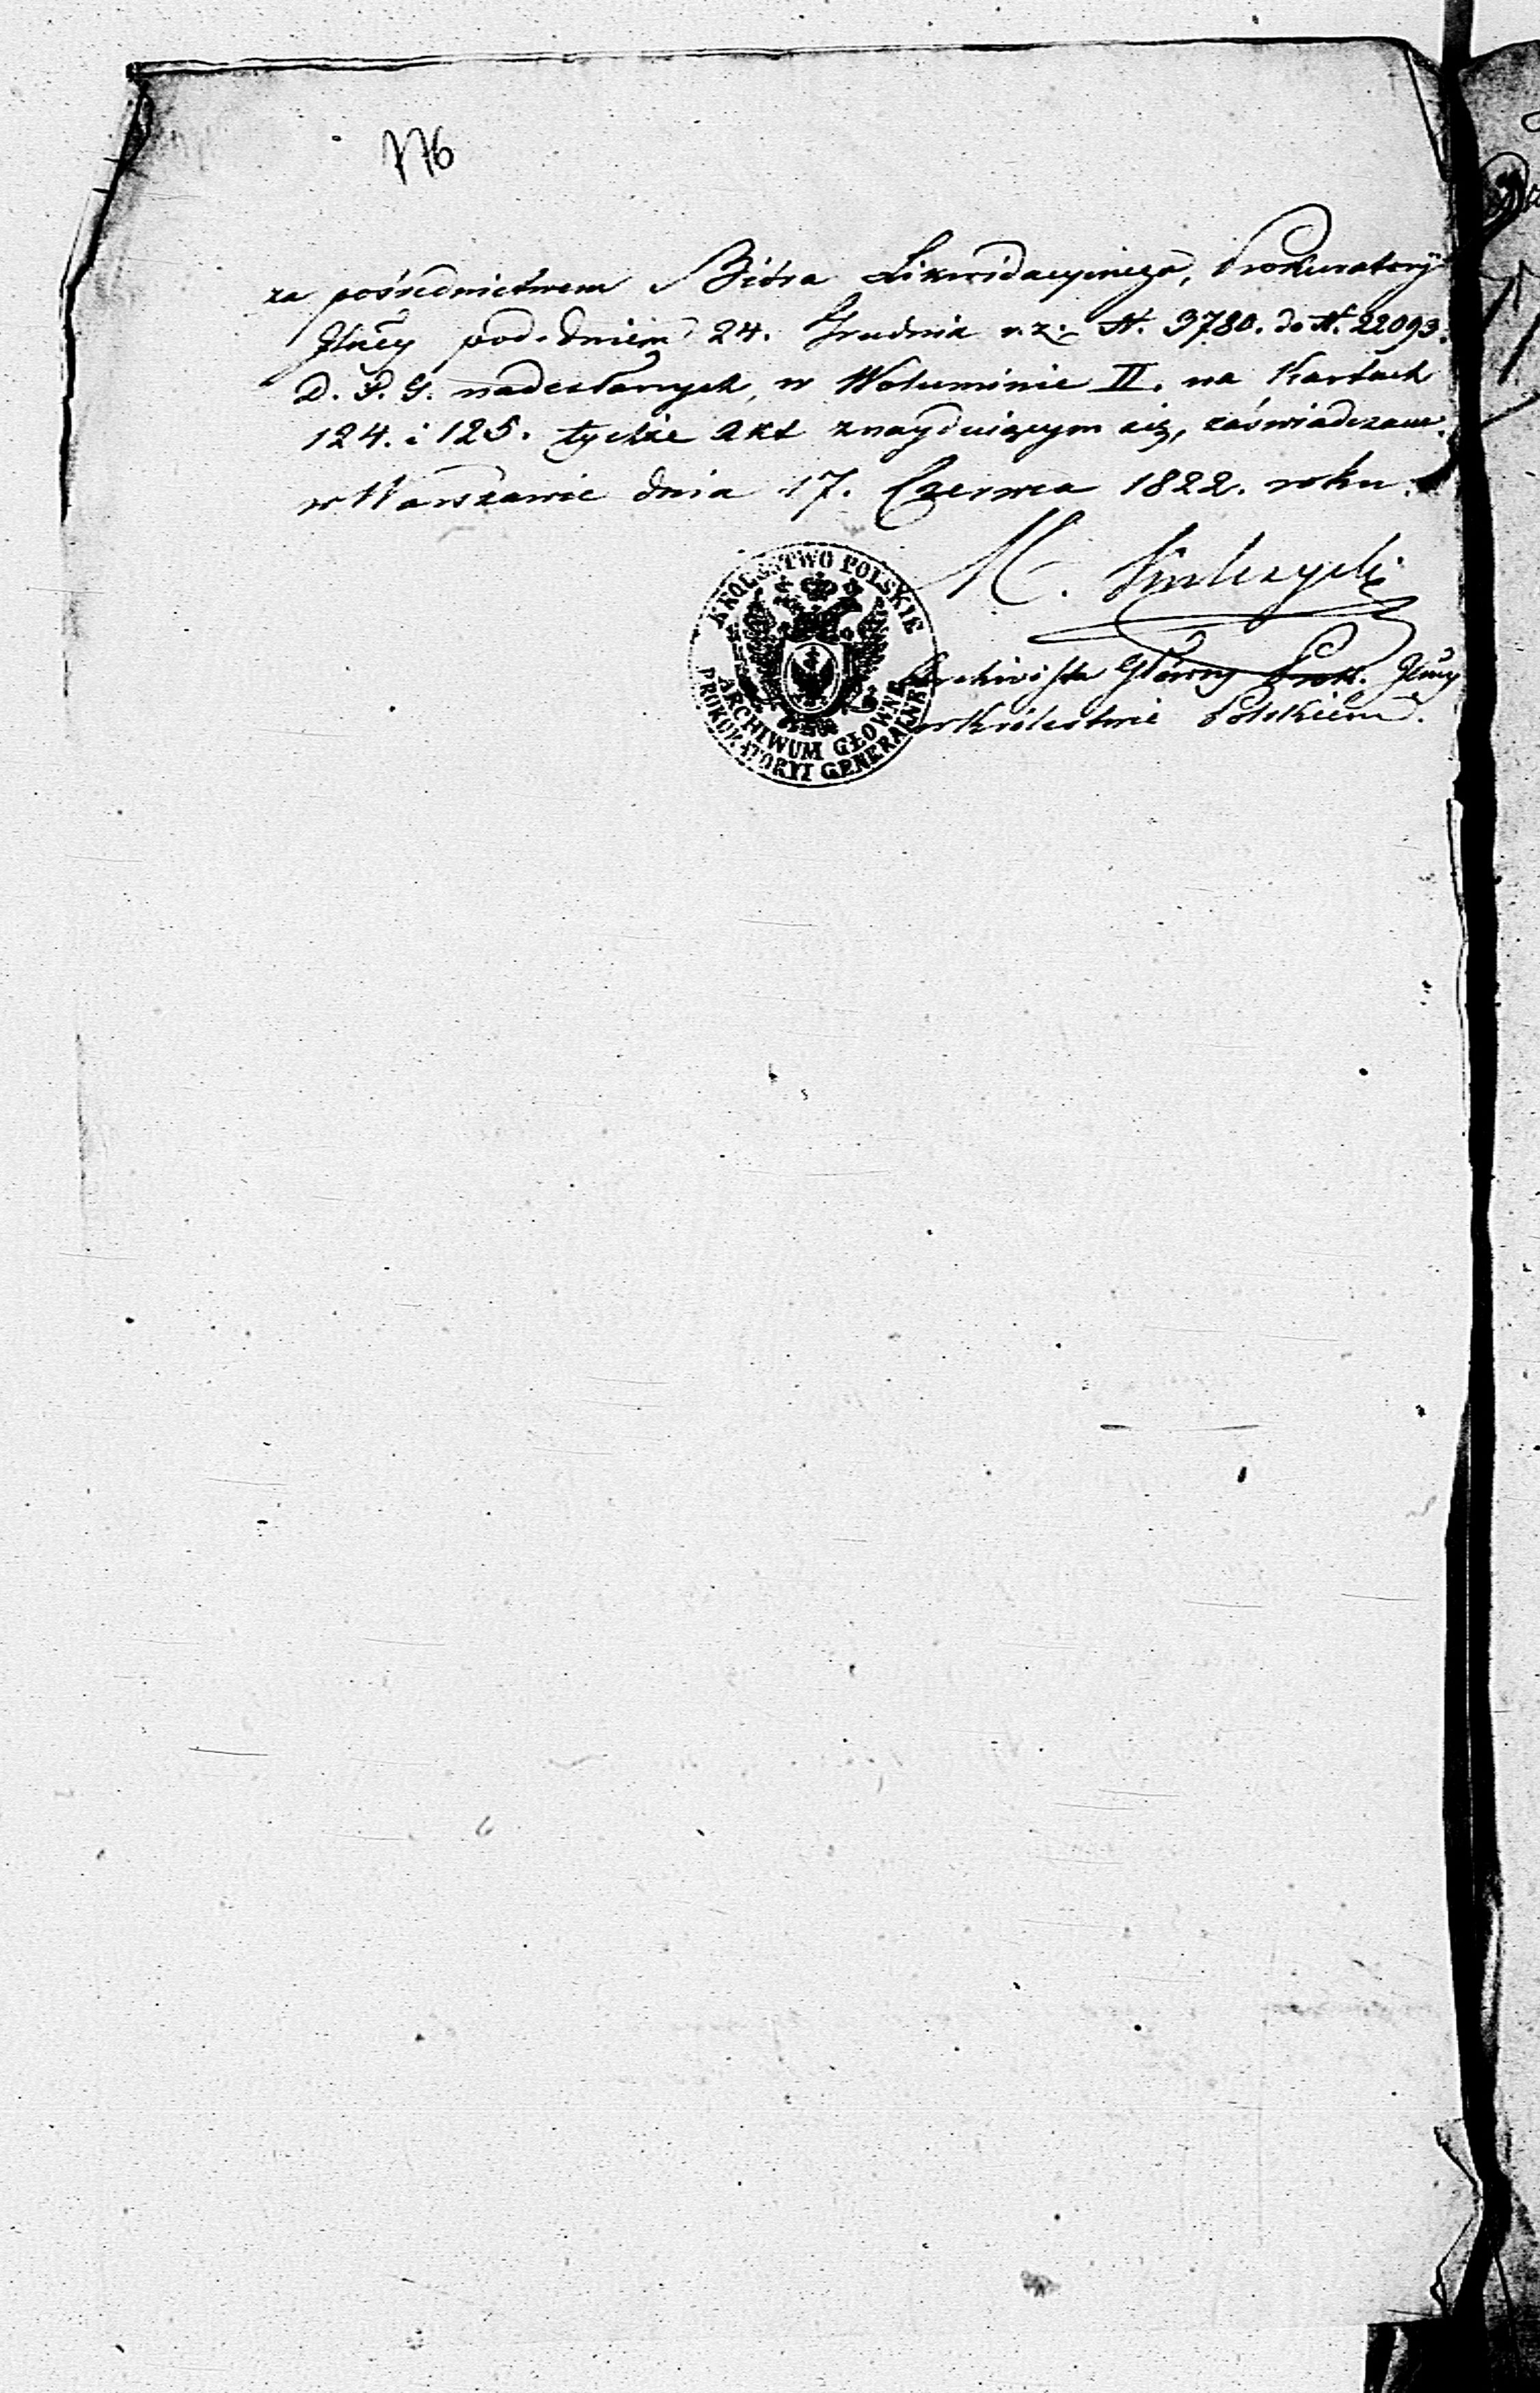 176
za pośrednictwem Bióra Likwidacyinego, Prokuratoryi
Jlney pod dniem 24. Grudnia r. z. N. 3780. do N. 22093.
D. P. G. nadesłanych, w Woluminie II. na Kartach
124. i 125. tychże Akt znayduiącym się, zaświadczam.
w Warszawie dnia 17. Czerwca 1822. roku.
M.
KROLESTWO POLSKIE
ARCHIWUM GŁOWNE
PROKURATORYI GENERALNEY
Archivista Główny Prok. Jlney
w Królestwie Polskiem.